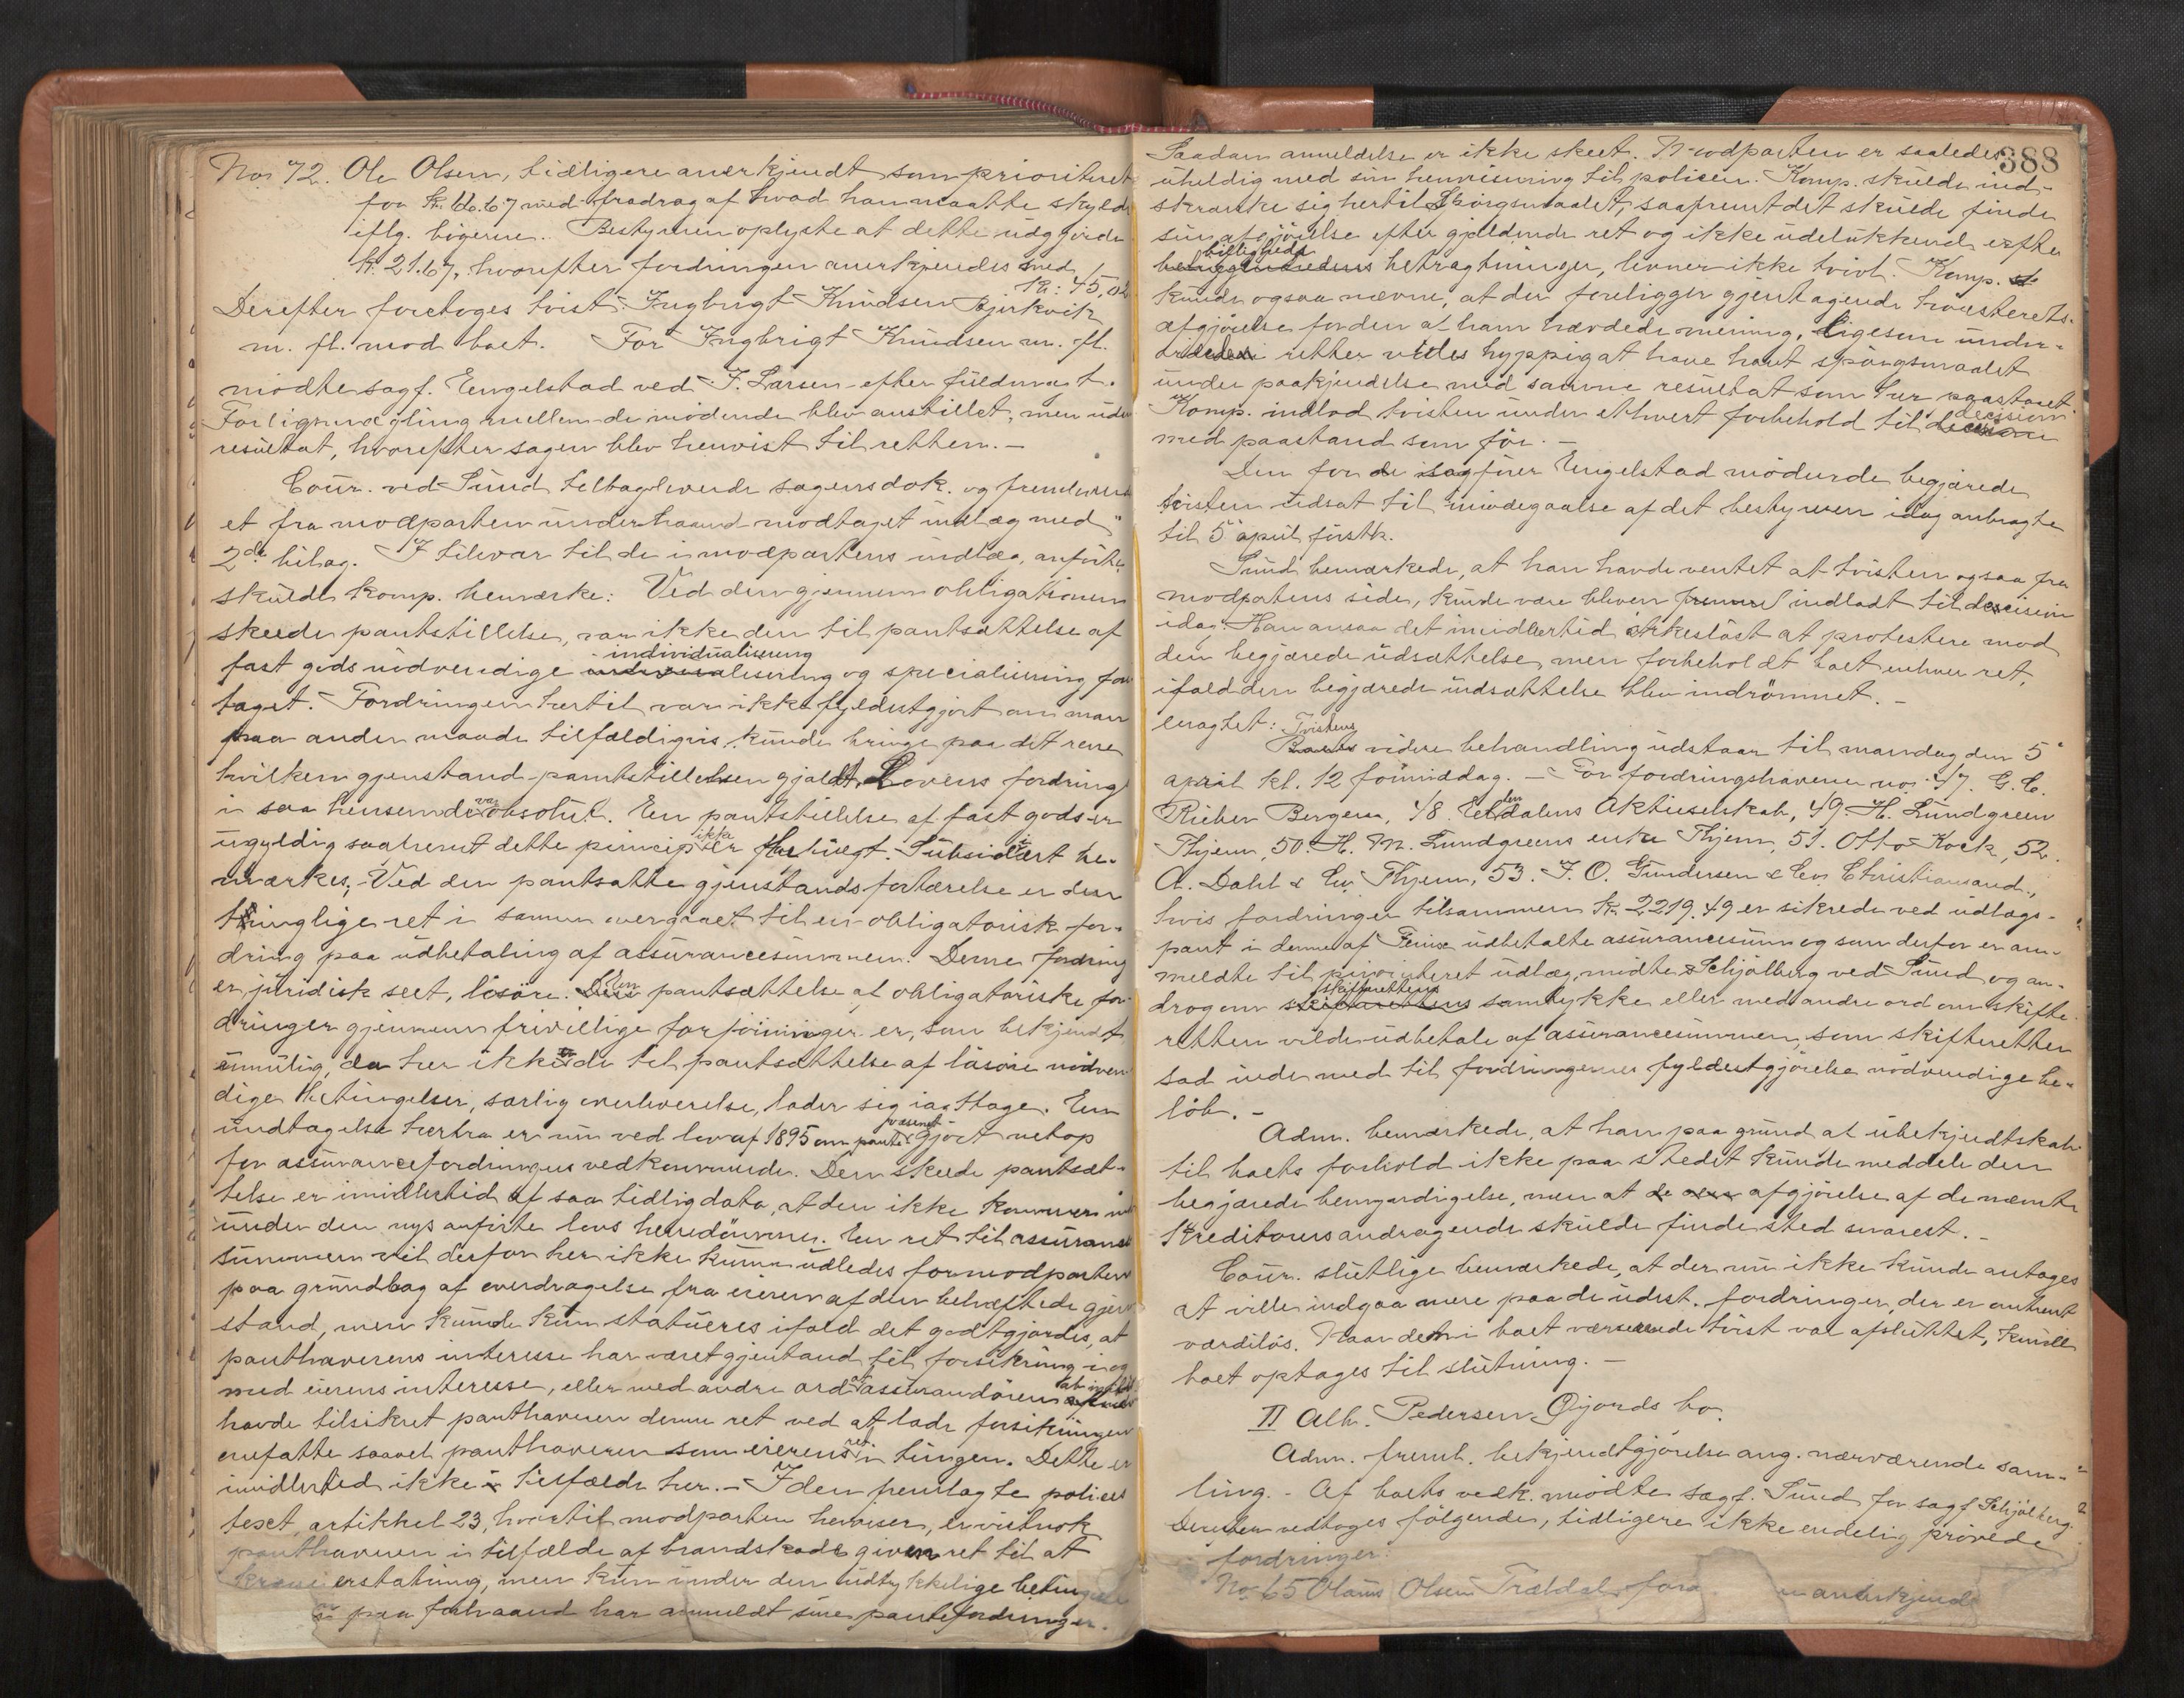 No 72. Ole Olsen, tidligere anerkjendt som prioriteret
for kr. 66.67 med fradrag af hvad han maatte skylde
iflg. bögerne. Bestyreren oplyste at dette udgjorde
kr. 21.67, hvorefter fordringen anerkjendes med
kr: 45,02
Derefter foretoges tvist: Ingbrigt Knudsen Bjerkvik
m. fl. mod boet. For Ingbrigt Knudsen m. fl.
mödte sagf. Engelstad ved J. Larsen efter fuldmagt.
Forligsmægling mellem de mödende blev anstillet, men uden
resultat, hvorefter sagen blev henvist til retten. –
Cour. ved Sund tilbageleverede sagens dok. og fremleverede
et fra modparten underhaand modtaget indlæg med
2de bilag. I tilsvar til de i modpartens indlæg anförte
skulde komp. bemærke: Ved den gjennem obligationen
skeede pantstillelse, var ikke den til pantsættelse af
individualisering
fast gods nödvendige og specialisering fore
taget. Fordringen hertil var ikke fyldestgjort om man
paa anden maade tilfældigvis kunde bringe paa det rene
hvilken gjenstand pantstillelsen gjaldt. Lovens fordring
i saa henseende var absolut. En pantstillelse af fast gods er
ugyldig saafremt dette princip ikke er fulgt. Subsidiært be-
mærkes, Ved den pantsatte gjenstands fortærelse er den
tinglige ret i samme overgaaet til en obligatorisk for-
dring paa udbetaling af assurancesummen. Denne fordring
er juridisk seet, lösöre. Den pantsættelse af obligatoriske for-
dringer gjennem frivillige forföininger er, som bekjendt
umulig, da her ikke de til pantsættelse af lösöre nödven-
dige betingelser, særlig overleverelse, lader sig iagttage. En
undtagelse herfra er nu ved lov af 1895 om pantevæsenet gjort netop
for assurancefordringers vedkommende. Den skeede pantsæt-
telse er imidlertid af saa tidlig dato, at den ikke kommer ind
under den nys anförte lovs herredömme. En ret til assurance
summen vil derfor her ikke kunne udledes for modparten
paa grundlag af overdragelse fra eieren af den behæftede gjen
stand, men kunde kun statueres ifald det godtgjordes, at
panthaverens interesse har været gjenstand for forsikring i og
med eierens interesse, eller med andre ord at assurandören
havde tilsikret panthaveren denne ret ved at lade forsikringen
omfatte saavel panthaveren som eierens ret i tingen. Dette er
imidlertid ikke tilfælde her. – I den fremlagte polices
text, artikkel 23, hvortil modparten henviser, er vistnok
panthaveren i tilfælde af brandskade given ret til at
kræve erstatning, men kun under den udtrykkelige betingelse
paa forhaand har anmeldt sine pantefordringer.
388
Saadan anmeldelse er ikke skeet. Modparten er saaledes
uheldig med sin henvisning til policen. Komp. skulde ind-
skrænke sig hertil. Spörgsmaalet, saafremt det skulde finde
sin afgjörelse efter gjældende ret og ikke udelukkende efter
billigheds
betragtninger, levner ikke tvivl. Komp.
kunde ogsaa nævne, at der foreligger gjentagende höiesterets-
afgjörelse for den af ham hævdede mening, ligesom under-
ordnede retter vides hyppig at have havt spörgsmaalet
under paakjendelse med samme resultat som her paastaaet.
Komp. indlod tvisten under ethvert forbehold til decision
med paastand som för. –
Den for sagförer Engelstad mödende begjærede
tvisten udsat til imödegaaelse af det bestyreren idag anbragte
til 5 april förstk.
Sund bemærkede, at han havde ventet at tvisten ogsaa fra
modpartens side, kunde være bleven indladt til decision
idag. Han ansaa det imidlertid örkeslöst at protestere mod
den begjærede udsættelse, men forbeholdt boet enhver ret,
ifald den begjærede udsættelse blev indrömmet. –
eragtet: Tvistens
videre behandling udstaar til mandag den 5
april kl. 12 formiddag. – For fordringshaverne no. 47. G. C.
Rieber Bergen, 48. Aktieselskab, 49. H. Lundgreen
Thjem, 50. H. M. Lundgreens enke Thjem, 51. Otto Kock, 52.
A. Dahl & Co. Thjem, 53. J. O. Gundersen & Co. Christiansand,
hvis fordringer tilsammen kr. 2219.49 er sikrede ved udlægs-
pant i denne af udbetalte assurancesum og som derfor er an-
meldte til prioriteret udlæg, mödte Schjölberg ved Sund og an-
drog om skifterettens samtykke eller med andre ord om skifte-
retten vilde udbetale af assurancesummen, som skifteretten
sad inde med til fordringernes fyldestgjörelse nödvendige be-
löb. –
Adm. bemærkede, at han paa grund af ubekjendtskab
til boets forhold ikke paa stedet kunde meddele den
begjærede bemyndigelse, men at afgjörelse af de nævnte
kreditorers andragende skulde finde sted snarest. –
Cour. sluttelige bemærkede, at der nu ikke kunde antages
at ville indgaa mere paa de udest. fordringer, der er omtrent
værdilös. Naar den i boet værserende tvist var afsluttet, kunde
boet optages til slutning. –
II Alb. Pedersen Öijords bo.
Adm. freml. bekjendtgjörelse ang. nærværende sam-
ling. – Af boets vedk. mödte sagf. Sund for sagf. Schjölberg.
Derefter vedtoges fölgende, tidligere ikke endelig prövede
fordringer:
No. 65 Olaus Olsen Trældal, anerkjend